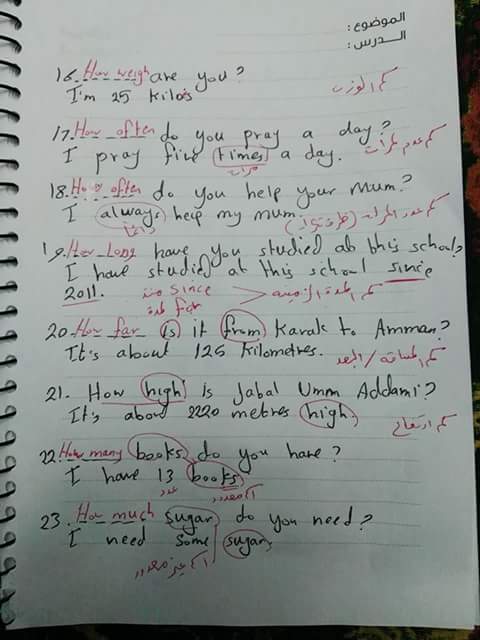 الموضوع:
الدرس:
16. How weigh are you?
كم الوزن
I'm 25 kilos
17. How often do you pray a day?
I pray five times a day.
كم عدد مرات
مرات
18. How often do you help your Mum?
I always help my mum.
دائماً
كم عدد المرات
19. How Long have you studied at this school?
I have studied at this school since
2011.
منذ since
لمدة for
كم المدة الزمنية
20. How far is it from Karak to Amman?
It's about 125 Kilometres.
كم المسافة / البعد
21. How high is Jabal Umm Addami?
It's about 2220 metres high.
كم ارتفاع
22. How many books do you have?
I have 13 books
عدد
اسم معدود
23. How much sugar do you need?
I need some sugar
اسم غير معدود